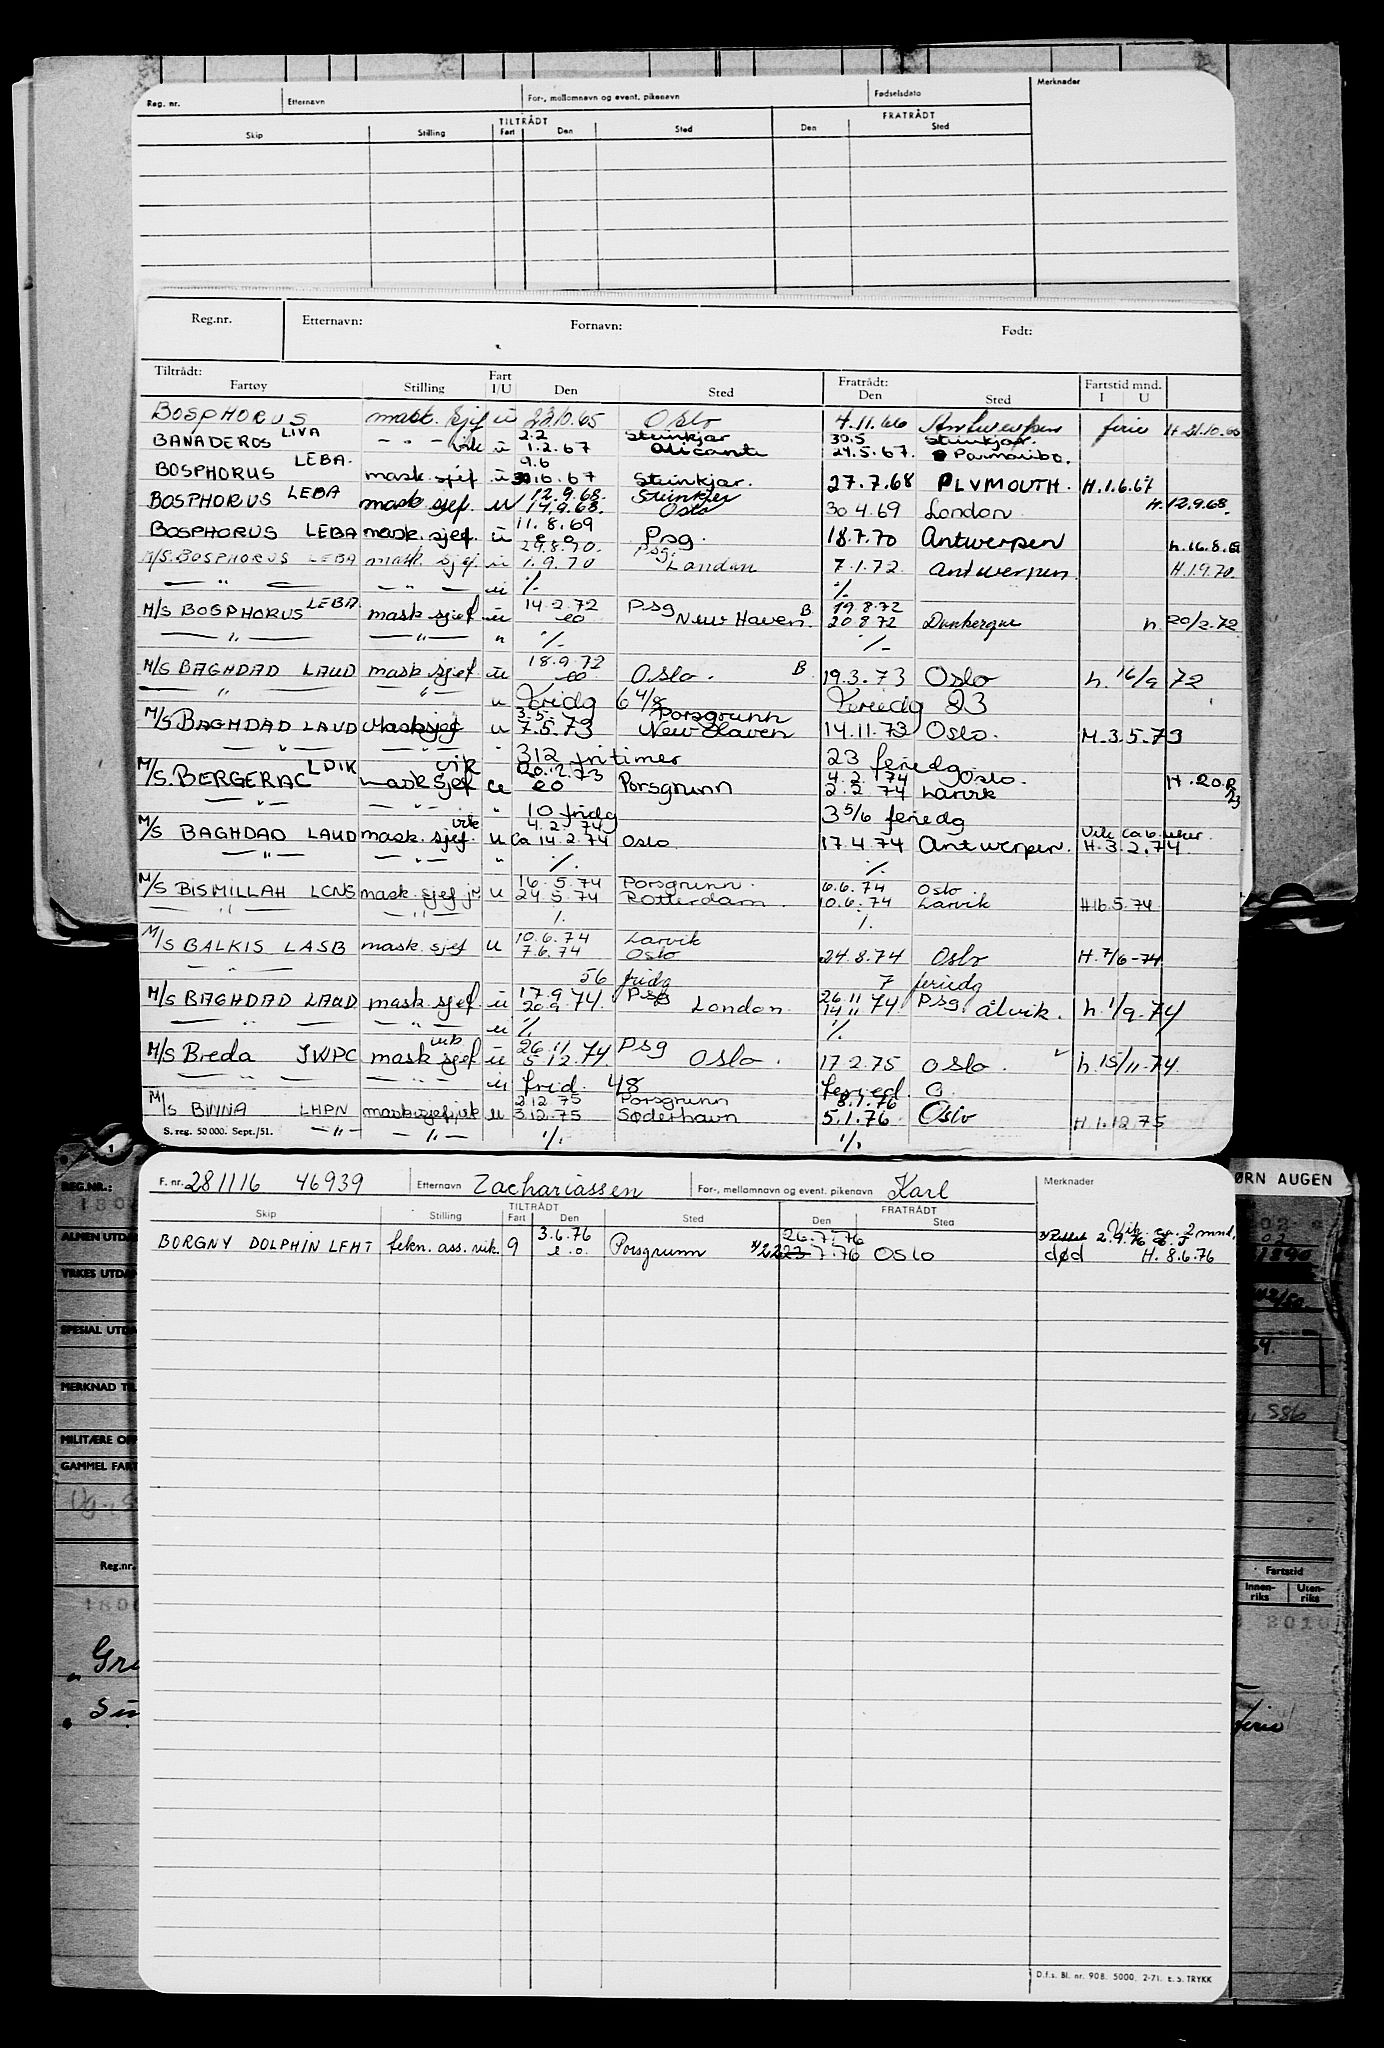 Reg. nr. Etternavn For-, mellomnavn og event. pikenavn Fødselsdato Merknader
TILTRÅDT FRATRÅDT
Skip Stilling Fart Den Sted Den Sted
Reg.nr. Etternavn: Fornavn: Født:
Tiltrådt: Fart Fratrådt: Fartstid mnd.
Fartøy Stilling I/U Den Sted Den Sted I U
BOSPHORUS mask. sjef u 22.10.65 Oslo 4.11.66 Antwerpen ferie H 21.10.66
LIVA 2.2 Steinkjær 30.5 Steinkjær.
BANADEROS - " - vik u 1.2.67 Alicante 24.5.67. Parmaribo.
LEBA. 9.6
BOSPHORUS mask. sjef u 10.6.67 Steinkjær. 27.7.68 PLYMOUTH. H.1.6.67
12.9.68. Steinkjer
BOSPHORUS LEBA mask sjef. u 14.9.68. Oslo 30 4.69 London. H.12.9.68.
11.8.69
BOSPHORUS LEBA mask. sjef. u e o Psg. 18.7.70 Antwerpen h.16.8.69
29.8.70. Psg.
M/S. BOSPHORUS LEBA mask. sjef. u 1.9.70 London 7.1.72. Antwerpen. H.1.9.70.
— " — — " — u ./. ./.
LEBA 14.2.72 Psg B 19.8.72
M/S BOSPHORUS mask sjef u eo New Haven. 20 8 72 Dunkerque h 20/2.72
— " — — " — " ./. ./.
18.9.72 B
M/S BAGHDAD LAUD mask. sjef. u eo Oslo. 19.3.73 Oslo h. 16/9 72
— " — — " — u Fridg 6 4/8 Feriedg 23
3.5. Porsgrunn
M/S BAGHDAD LAUD Masksjef u 7.5.73 New Haven 14.11.73 Oslo. M.3.5.73
— " — — " — " 312 fritimer 23 feriedg.
LDIK vik 20.12.73 4.2.74 Oslo.
M/S. BERGERAC Mask sjef u eo Porsgrunn 2.2.74 Larvik H.20.12/73
— " — — " — " 10 fridg 3 5/6 feriedg
vik 4.2.74 Vik ca 6 uker.
M/S BAGHDAD LAUD mask. sjef. u ca 14.2.74 Oslo 17.4.74 Antwerpen. H.3.2.74
— " — — " — " ./. ./.
16.5.74 Porsgrunn. 6.6.74 Oslo
M/S BISMILLAH LCNS mask. sjef jr u 24.5.74 Rotterdam. 10.6.74 Larvik H16.5.74
— " — — " — ./. ./.
10.6.74 Larvik
M/S BALKIS LASB mask. sjef u 7.6.74 Oslo 24.8.74 Oslo H.7/6-74
— " — 56 fridg 7 feriedg
17.9 Psg 26.11
M/S BAGHDAD LAUD mask. sjef. u 20.9.74. London. 14 11 74 Psg. Ålvik. h. 1/9.74
— " — — " — u ./. ./.
vik 26.11.74 Psg
M/S Breda JWPC mask sjef u 5.12.74. Oslo. 17.2.75 Oslo. h.15/11-74.
— " — — " — u frid. 48 feried. 0.
2.12.75 Porsgrunn 8.1.76
M/S BINNA LHPN masksjefvik u 3.12.75 Søderhavn 5.1.76. Oslo H 1.12.75
S. reg. 50 000. Sept./51. — " — — " — ./. ./.
F. nr. 281116 46939 Etternavn Zachariassen For-, mellomnavn og event. pikenavn Karl Merknader
TILTRÅDT FRATRÅDT
Skip Stilling Fart Den Sted Den Sted
3.6.76 26.7.76 Vik. ca. 2 mnd.
BORGNY DOLPHIN LFHT tekn. ass. vik. 9 e. o. Porsgrunn 7.76 Oslo død H. 8.6.76
D.f.s. Bl. nr. 908. 5000. 2-71. E. S. TRYKK
REG.NR.:
ALMEN UTDA
YRKES UTDA
SPESIAL UTDA
MERKNAD TIL
MILITÆRE OPP
GAMMEL FART
Reg.nr.
Gre
ØRN AUGEN
586
Fartstid
Innen-riks Uten-riks
2010
ferie